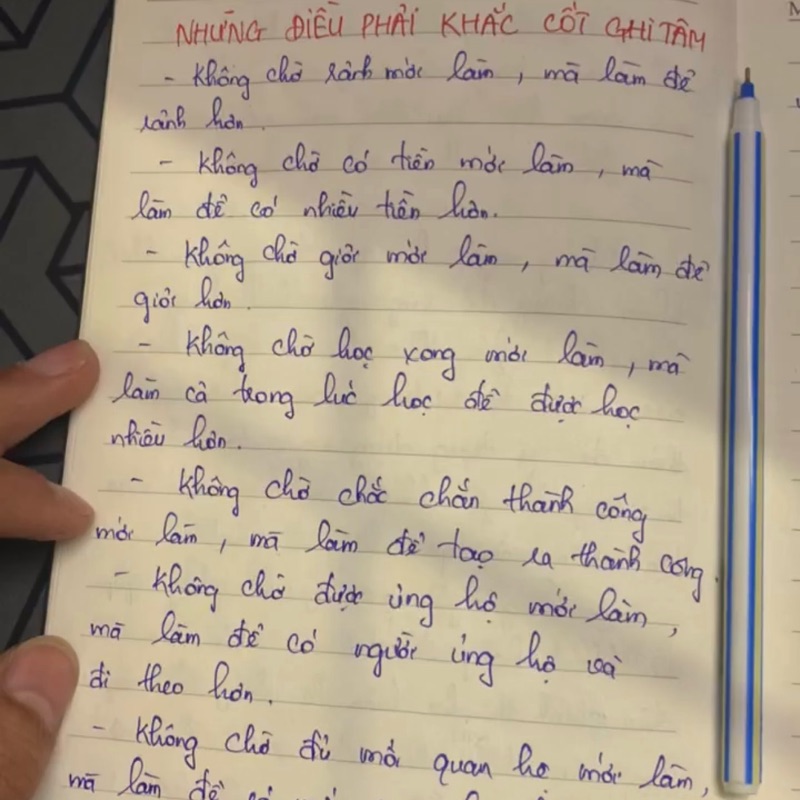 NHỮNG ĐIỀU PHẢI KHẮC CỐT GHI TÂM
- Không chờ rảnh mới làm, mà làm để
rảnh hơn.
- Không chờ có tiền mới làm, mà
làm để có nhiều tiền hơn.
- Không chờ giỏi mới làm, mà làm để
giỏi hơn.
- Không chờ học xong mới làm, mà
làm cả trong lúc học để được học
nhiều hơn.
- Không chờ chắc chắn thành công
mới làm, mà làm để tạo ra thành công.
- Không chờ được ủng hộ mới làm,
mà làm để có người ủng hộ và
đi theo hơn.
- Không chờ đủ mối quan hệ mới làm,
mà làm để có